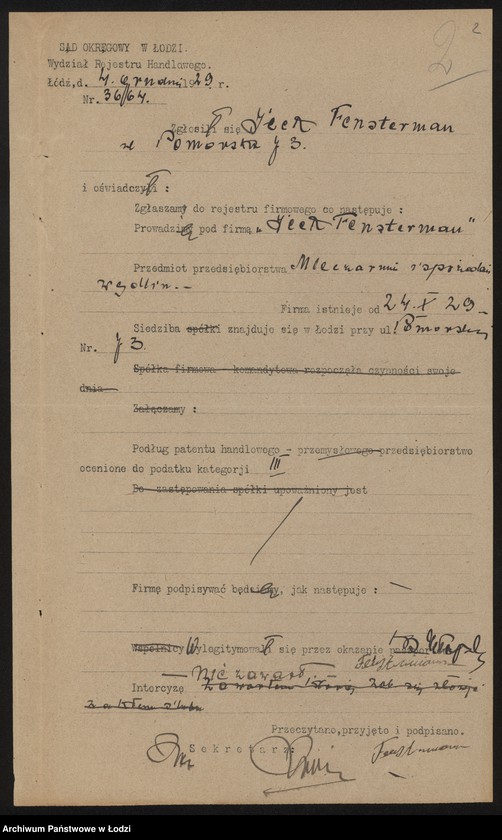 2
2
SĄD OKRĘGOWY W ŁODZI.
Wydział Rejestru Handlowego.
Łódź, d. 4 grudnia 1929 r.
Nr. 36/64.
Zgłosił się Icek Fensterman
Pomorska 73.
i oświadczył :
Zgłaszam do rejestru firmowego co następuje :
Prowadzę pod firmą „Icek Fensterman"
Przedmiot przedsiębiorstwa Mleczarnia i sprzedaż
wędlin. -
Firma istnieje od 24.X 29 -
Siedziba spółki znajduje się w Łodzi przy ul. Pomorskiej
Nr. 73.
Spółka firmowa - komandytowa rozpoczęła czynności swoje
dnia
Załączamy :
Podług patentu handlowego - przemysłowego przedsiębiorstwo
ocenione do podatku kategorji III
Do zastępowania spółki upoważniony jest
Firmę podpisywać będę, jak następuje : -
Wspólnicy Wylegitymował się przez okazanie
Fensterman
- Nie zawarł
Intercyzę
Przeczytano, przyjęto i podpisano.
Sekretarz:
Fensterman
Archiwum Państwowe w Łodzi